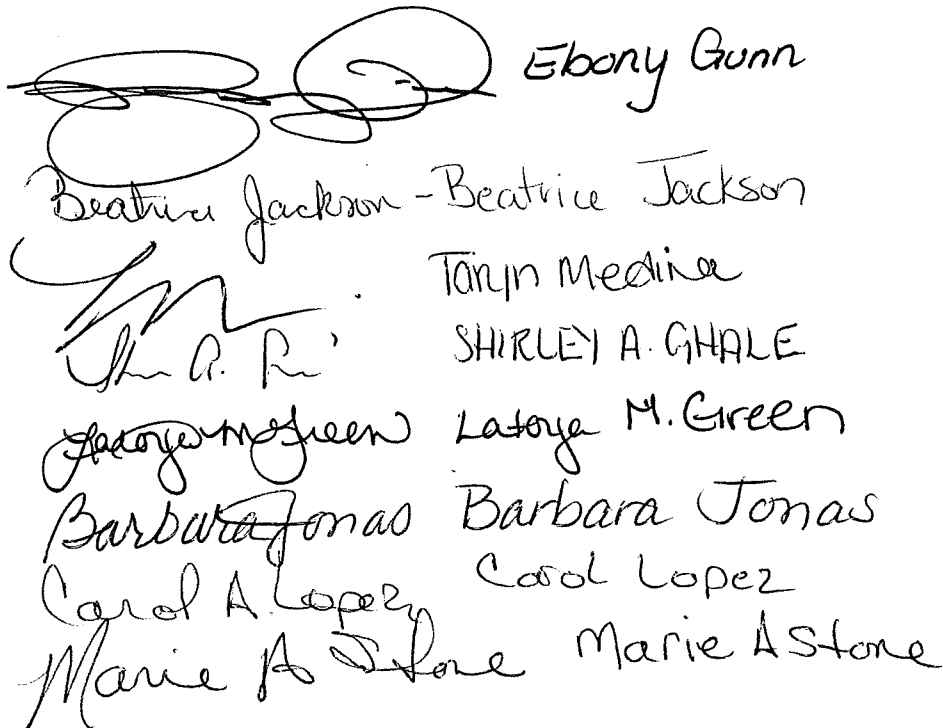 Ebony Gunn
Beatrice Jackson - Beatrice Jackson
Taryn Medina
SHIRLEY A. GHALE
Latoya M Green Latoya M. Green
Barbara Jonas Barbara Jonas
Carol A. Lopez Carol Lopez
Marie A Stone Marie A Stone